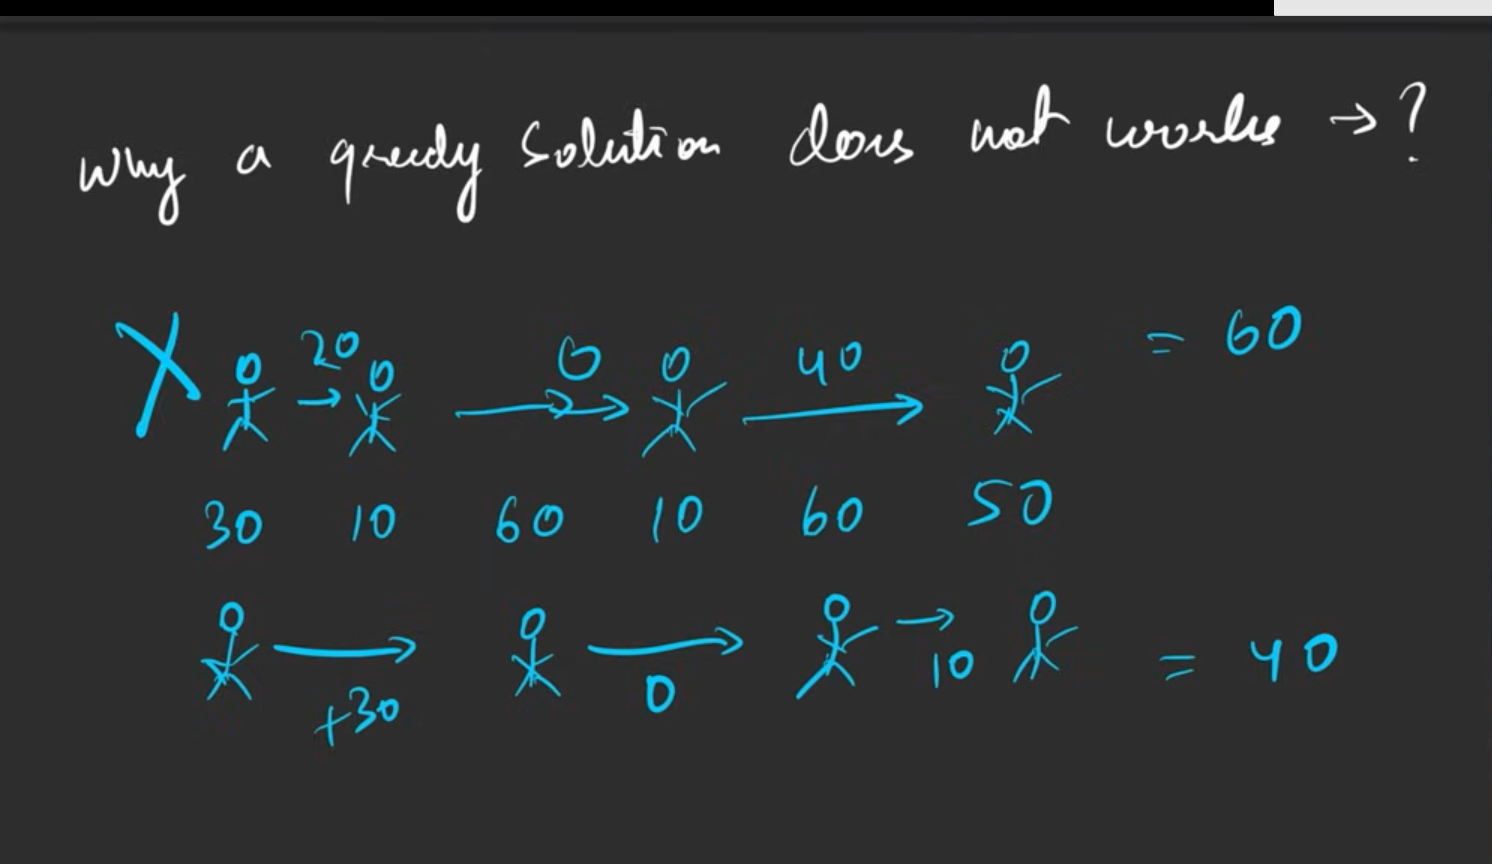 Why a greedy solution does not works → ?
20 0 40 = 60
30 10 60 10 60 50
+30 0 → 10 = 40